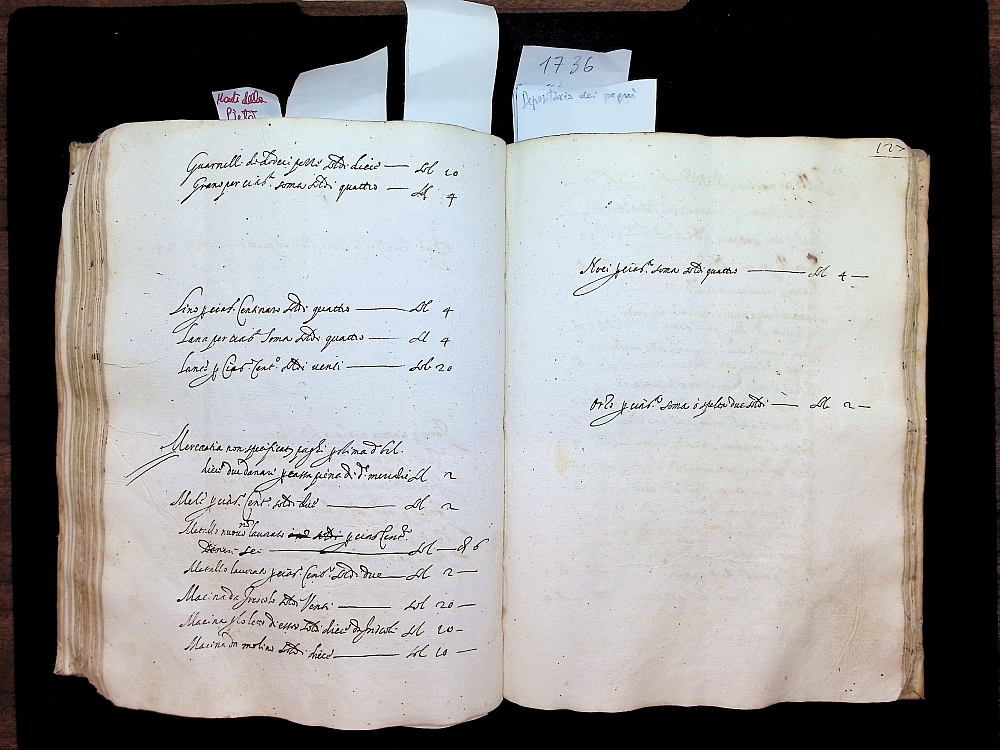 Monte della
Pietà
1736
Depositaria dei pegni
Guarnelli di dodeci pezze soldi dieci — sol 10
Grano per ciasᵃ soma soldi quattro — sol 4
Lino p ciasᵒ Centinaro soldi quattro — sol 4
Lana per ciasᵃ soma soldi quattro — sol 4
p Ciasᵒ Centᵒ soldi venti — sol 20
Mercantia non specificata paghi p stima di bol
dieci due danari p ciascuna di dᵉ mercantie sol 2
Mele p ciasᵒ Centᵒ soldi due — sol 2
Metallo nuovo non laborato p ciasᵒ Centᵒ
Denari sei — sol — d 6
Metallo laborato p ciasᵒ Centᵒ soldi due — sol 2 —
Macina da soldi Venti — sol 20 —
Macina di esso soldi dieci sol 10 —
Macina da molino soldi dieci — sol 10 —
127
Noci p ciasᵃ soma soldi quattro — sol 4 —
Orzo p ciasᵃ soma o spelta due soldi — sol 2 —